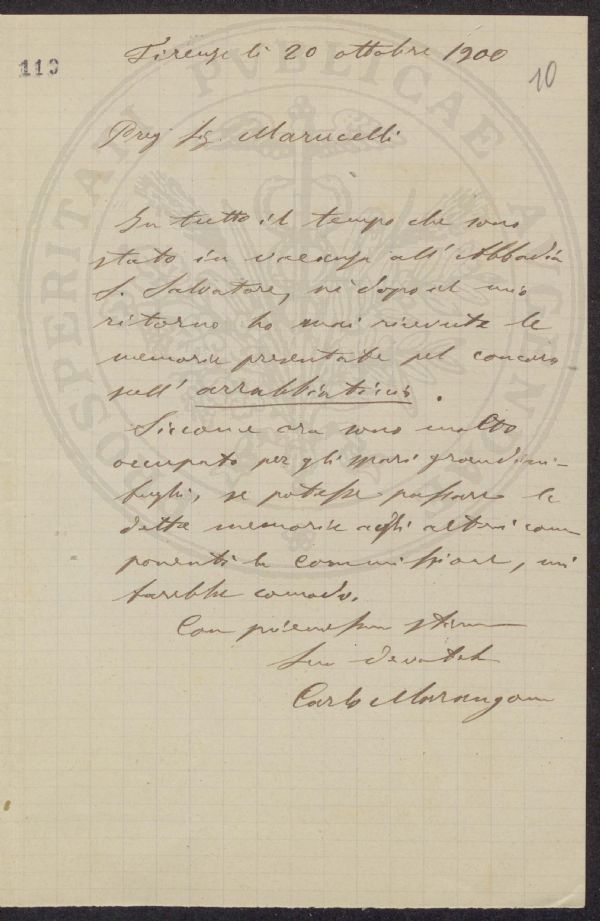 PROSPERITATI PVBLICAE AVGENDAE
110
10
Firenze li 20 ottobre 1900
Preg Sig. Marucelli
In tutto il tempo che sono
stato in vacanza all' Abbadia
S. Salvatore, nè dopo al mio
ritorno ho mai ricevute le
memorie presentate pel concorso
sull' arrabbiaticcio.
Siccome ora sono molto
occupato per gli spari grandini-
fughi, se potesse passare le
dette memorie agli altri com
ponenti la Commissione, mi
farebbe comodo.
Con pienessima stima
Suo devoto
Carlo Marangoni